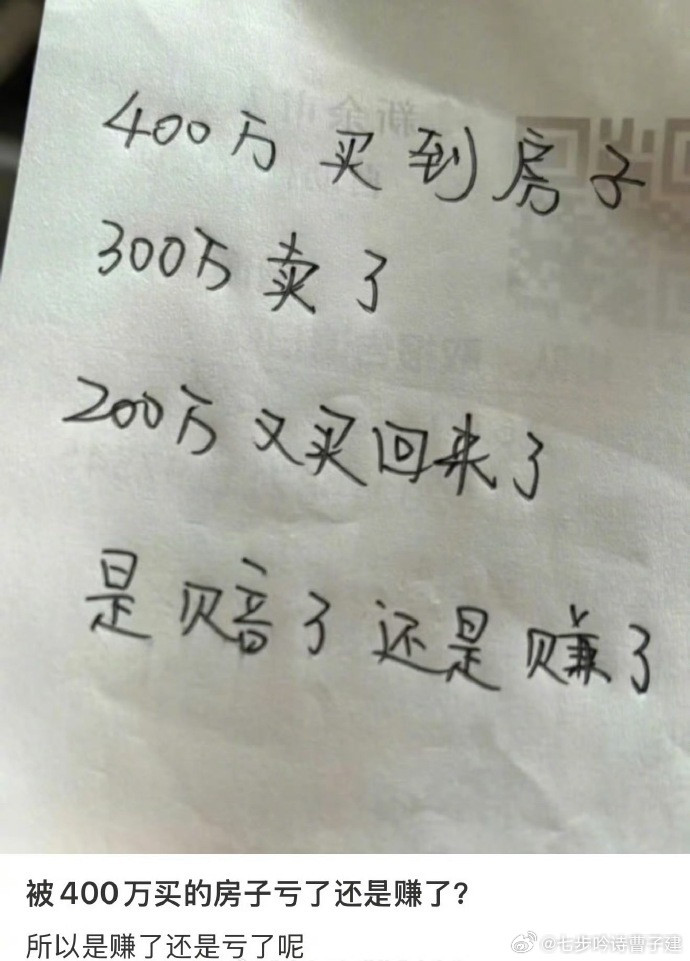 400万买到房子
300万卖了
200万又买回来了
是赔了还是赚了
被400万买的房子亏了还是赚了?
所以是赚了还是亏了呢
@七步吟诗曹子建